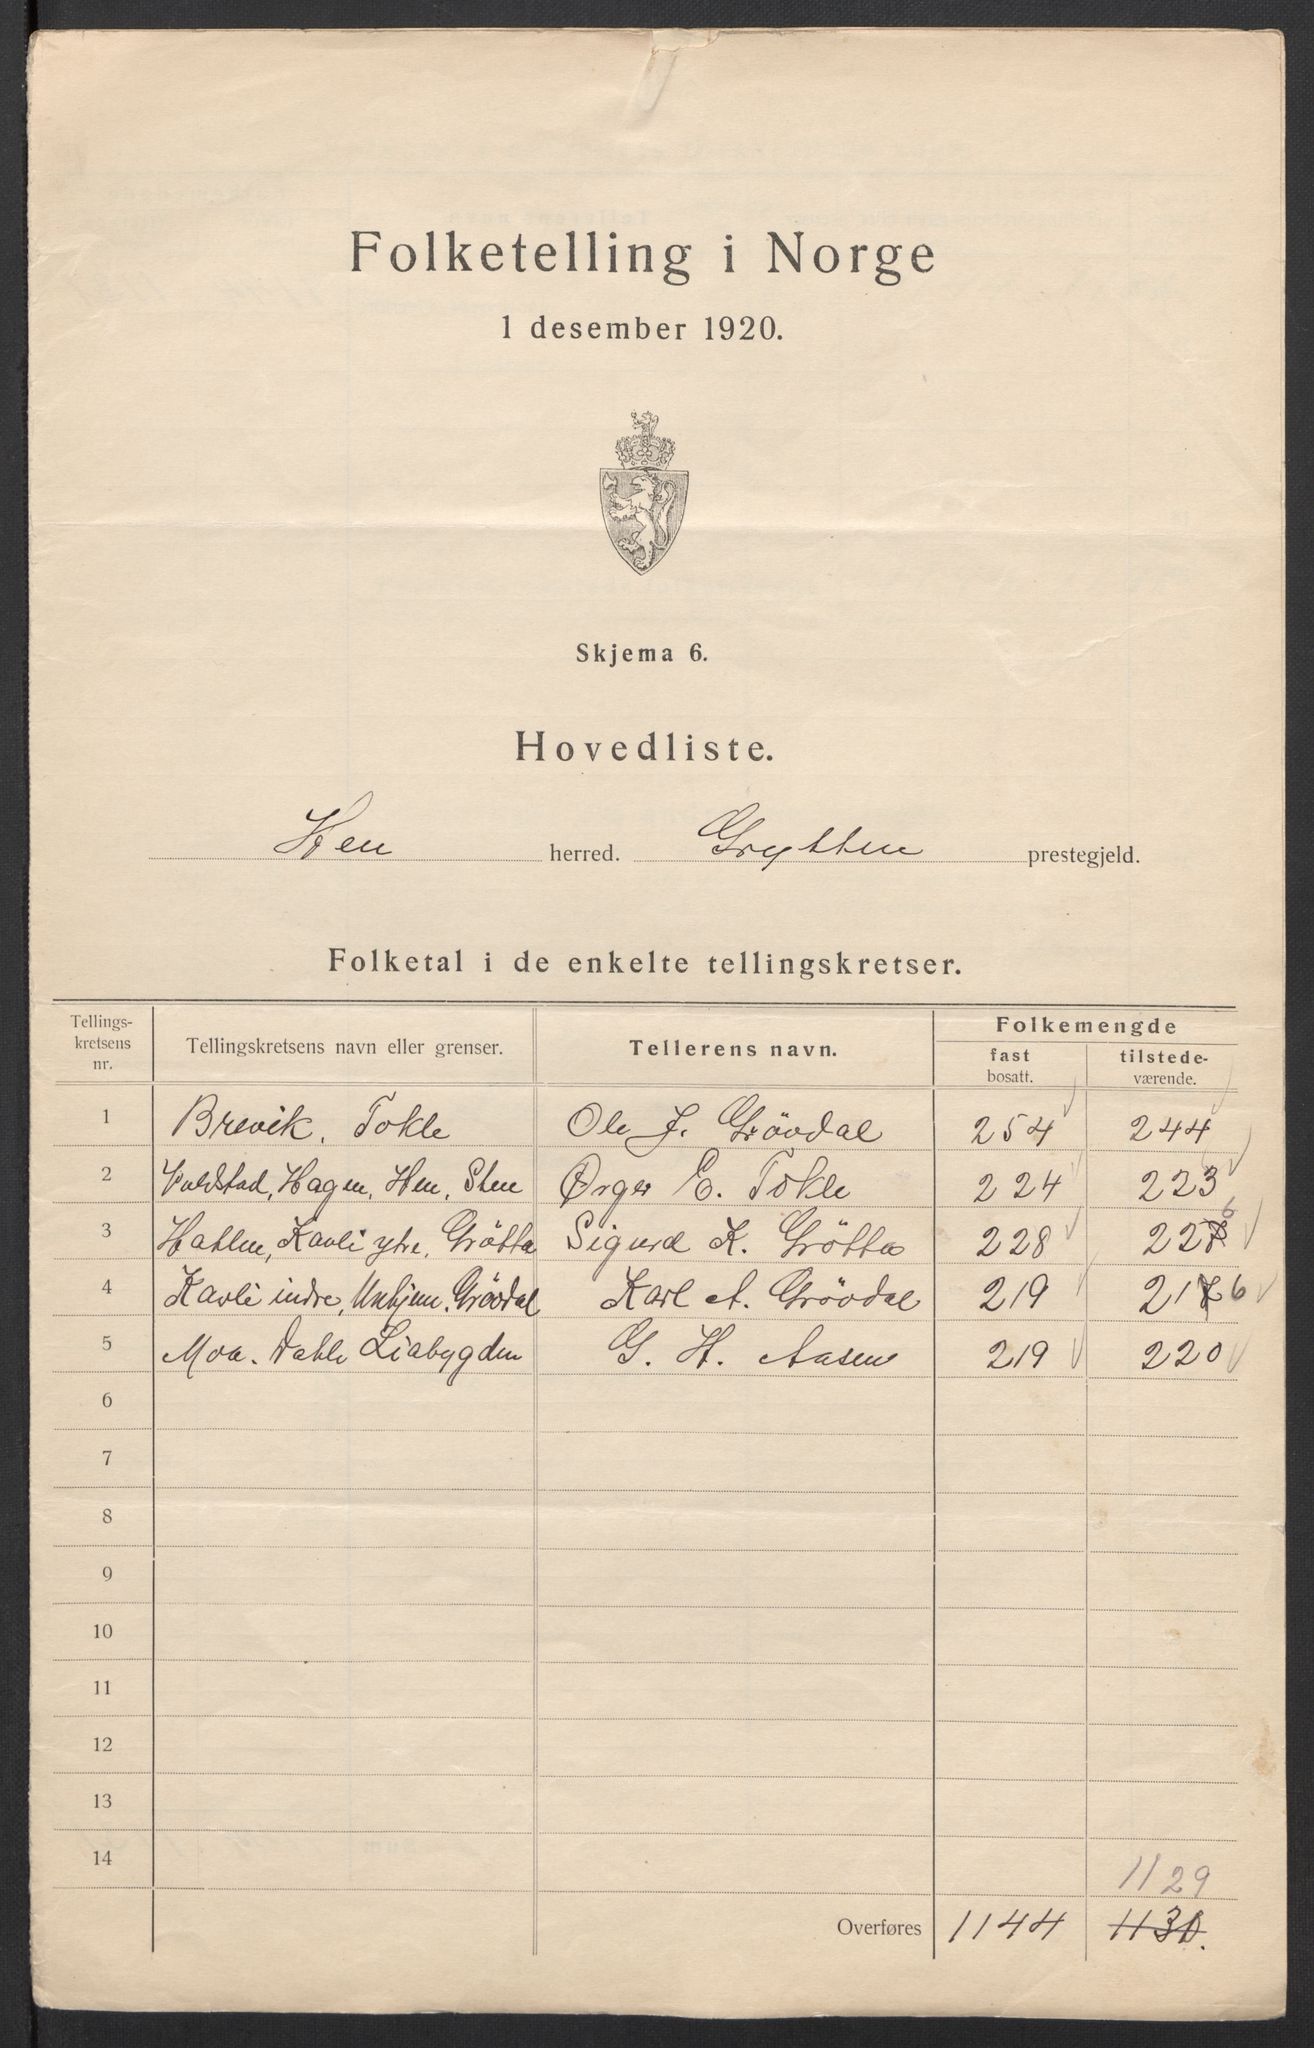 Folketelling i Norge
1 desember 1920.
Skjema 6.
Hovedliste.
Hen herred. Grytten prestegjeld.
Folketal i de enkelte tellingskretser.
Tellings-kretsens nr. Tellingskretsens navn eller grenser. Tellerens navn. Folkemengde
fast bosatt. tilstede-værende.
1 Brevik, Tokle Ole J. Grövdal 254 244
2 Voldstad, Hagen, Hen, Sten Ørger E. Tokle 224 223
3 Hatlen, Kavli ytre, Grötta Sigurd K. Grötta 228 227 6
4 Kavli indre, Unhjem, Grövdal Karl A. Grövdal 219 217 6
5 Moa. Dahle Liabygden G. H. Aasen 219 220
6
7
8
9
10
11
12
13
14 1129
Overføres 1144 1131.